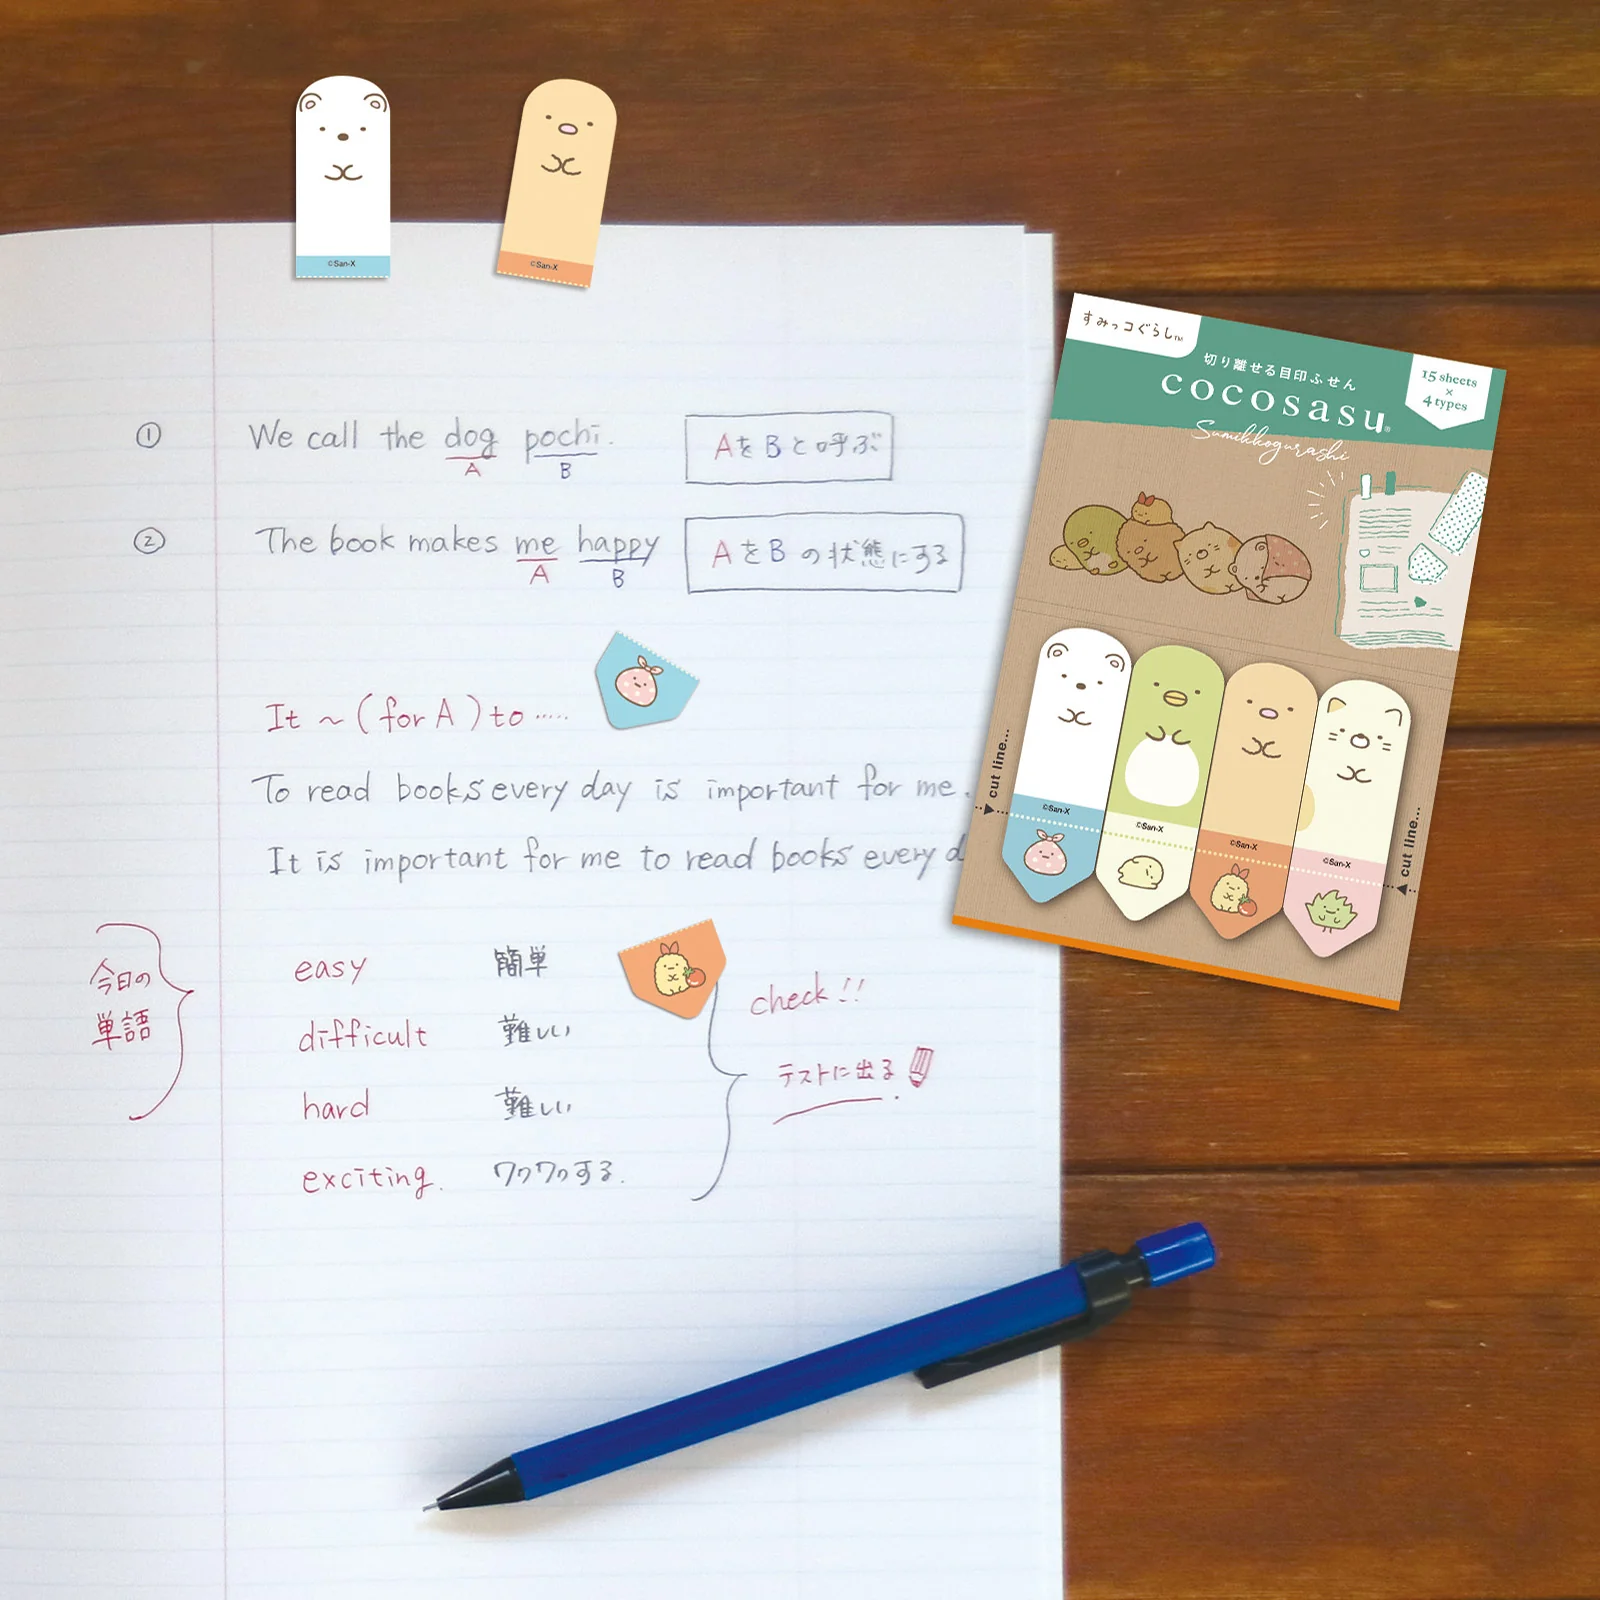 ©San-X
©San-X
① We call the dog pochi. AをBと呼ぶ
A B
② The book makes me happy AをBの状態にする
A B
It ~ (for A) to .....
To read books every day is important for me.
It is important for me to read books every d
今日の
単語
easy 簡単
difficult 難しい
hard 難しい
exciting. ワクワクする.
check!!
テストに出る
すみっコぐらし™
切り離せる目印ふせん
cocosasu®
Sumikkogurashi
15 sheets
×
4 types
cut line...
©San-X
©San-X
©San-X
©San-X
cut line...